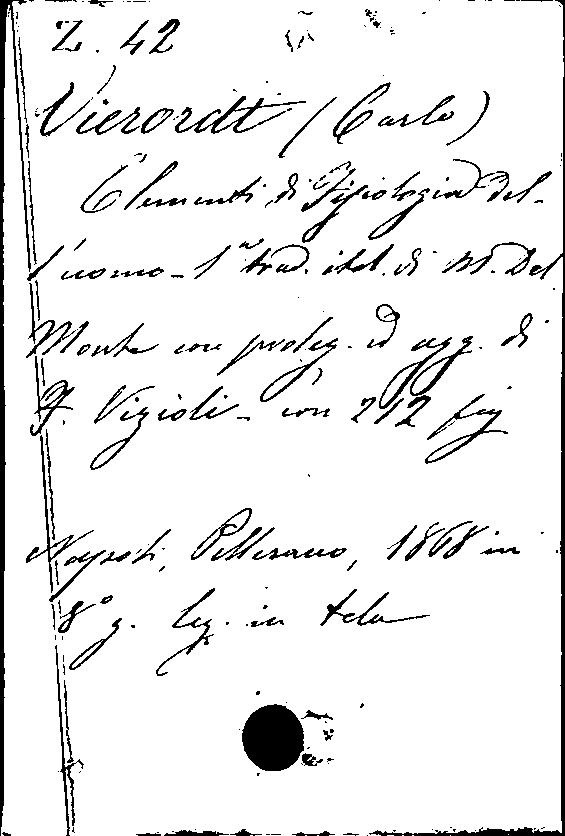 Z. 42
Vierordt (Carlo)
Elementi di Fisiologia del-
l'uomo - 1ª trad. ital. di M. Del
Monte con proleg. ed agg. di
F. Vizioli - con 212 fig
Napoli, Pellerano, 1868 in
8° g. leg. in tela